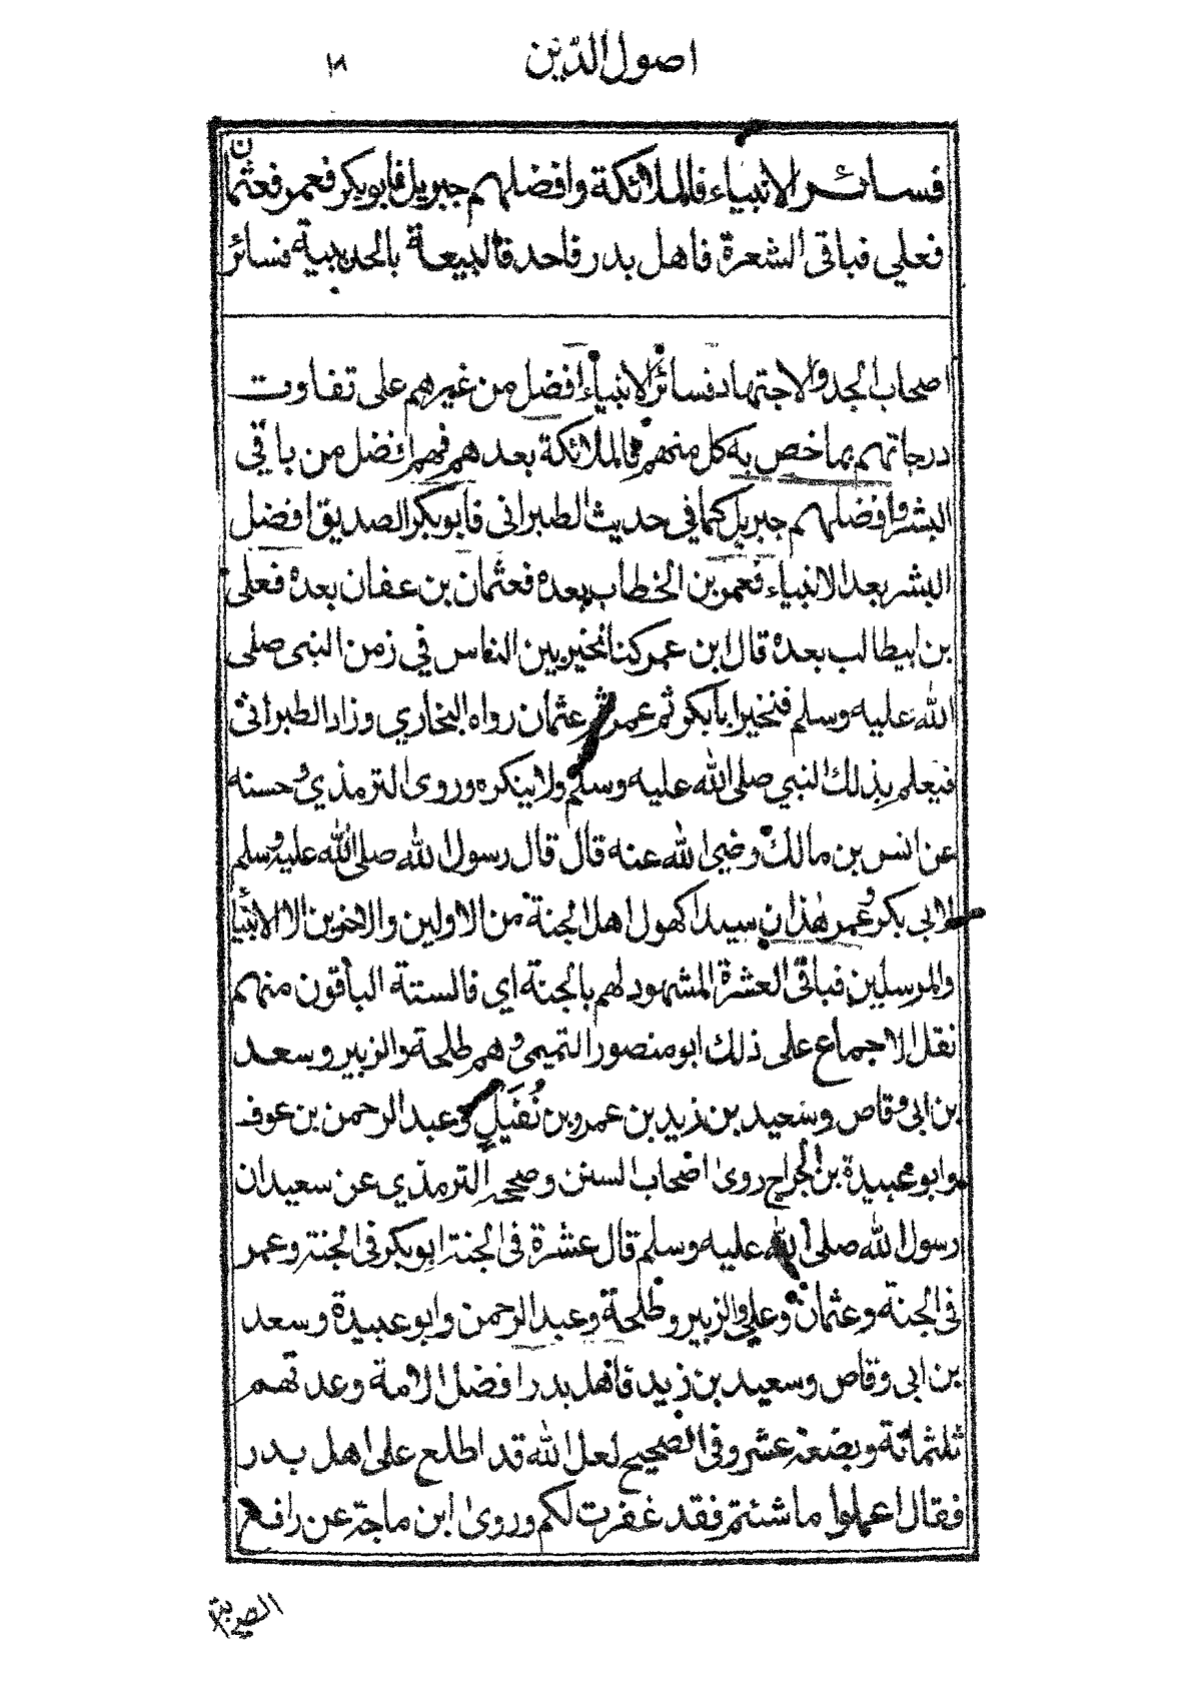 اصول الدين ١٨
فسائر الانبياء فالملائكة وافضلهم جبريل فابوبكر فعمر فعثمان
فعلي فباقى الشعرة فاهل بدر فاحد فالبيعة بالحديبية فسائر
اصحاب الجد والاجتهاد فسائر الانبياء افضل من غيرهم على تفاوت
درجاتهم بما خص به كل منهم فالملائكة بعدهم فهم افضل من باقي
البشر وافضلهم جبريل كما في حديث الطبراني فابوبكر الصديق افضل
البشر بعد الانبياء فعمر بن الخطاب بعده فعثمان بن عفان بعده فعلى
بن ابيطالب بعده قال ابن عمر كنا نخير بين الناس في زمن النبي صلى
الله عليه وسلم فنخير ابا بكر ثم عمر ثم عثمان رواه البخاري وزاد الطبراني
فيعلم بذلك النبي صلى الله عليه وسلم ولا ينكره وروى الترمذي وحسنه
عن انس بن مالك رضي الله عنه قال قال رسول الله صلى الله عليه وسلم
لابي بكر وعمر هذان سيدا كهول اهل الجنة من الاولين والاخرين الا الانبيا
والمرسلين فباقى العشرة المشهود لهم بالجنة اي فالستة الباقون منهم
نقل الاجماع على ذلك ابو منصور التميمي وهم طلحة والزبير وسعد
بن ابي وقاص وسعيد بن زيد بن عمرو بن نُفَيل وعبد الرحمن بن عوف
وابو عبيدة بن الجراح روى اصحاب السنن وصححه الترمذي عن سعيد ان
رسول الله صلى الله عليه وسلم قال عشرة في الجنة ابوبكر في الجنة وعمر
في الجنة وعثمان وعلي والزبير وطلحة وعبد الرحمن وابو عبيدة وسعد
بن ابي وقاص وسعيد بن زيد فاهل بدر افضل الامة وعدتهم
ثلثمائة وبضعة عشر وفي الصحيح لعل الله قد اطلع على اهل بدر
فقال اعملوا ما شئتم فقد غفرت لكم وروى ابن ماجة عن رافع